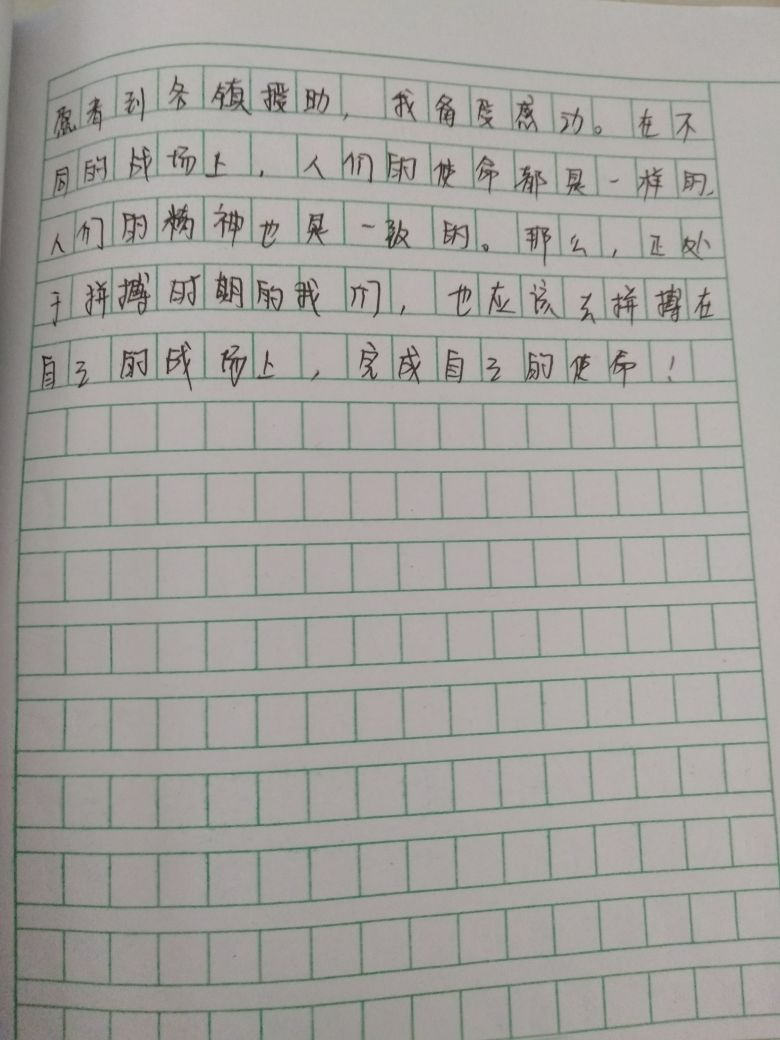 愿看到各镇援助，我备受感动。在不
同的战场上，人们的使命都是一样的，
人们的精神也是一致的。那么，正处
于拼搏时期的我们，也应该去拼搏在
自己的战场上，完成自己的使命！